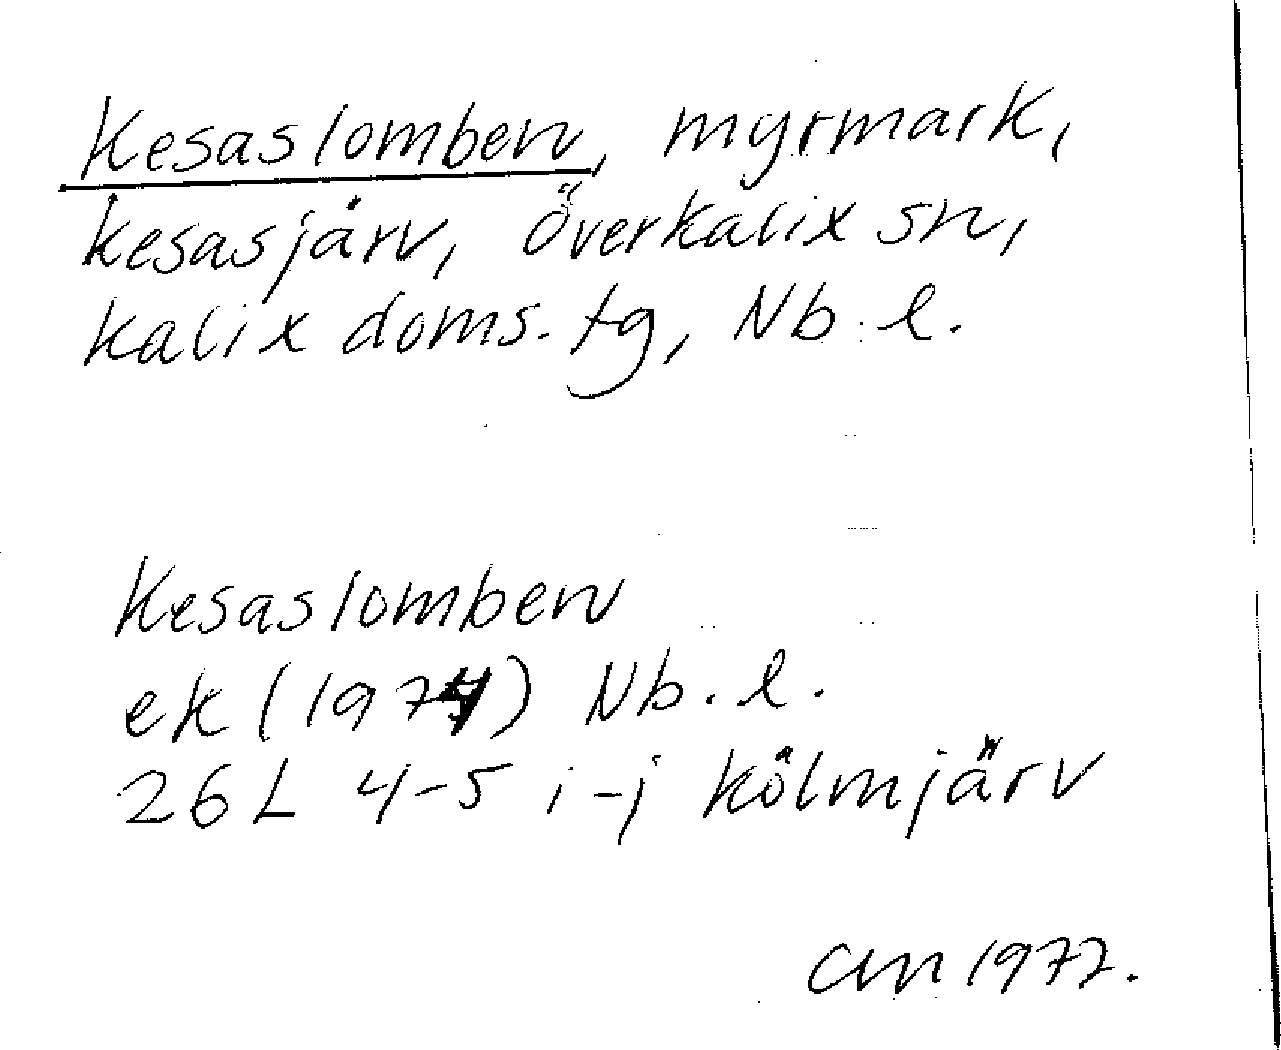 Kesaslomben, myrmark,
Kesasjärv, Överkalix sn,
Kalix doms. tg, Nb. l.
Kesaslomben
ek (1974) Nb. l.
26 L 4-5 i-j Kölmjärv
1977.